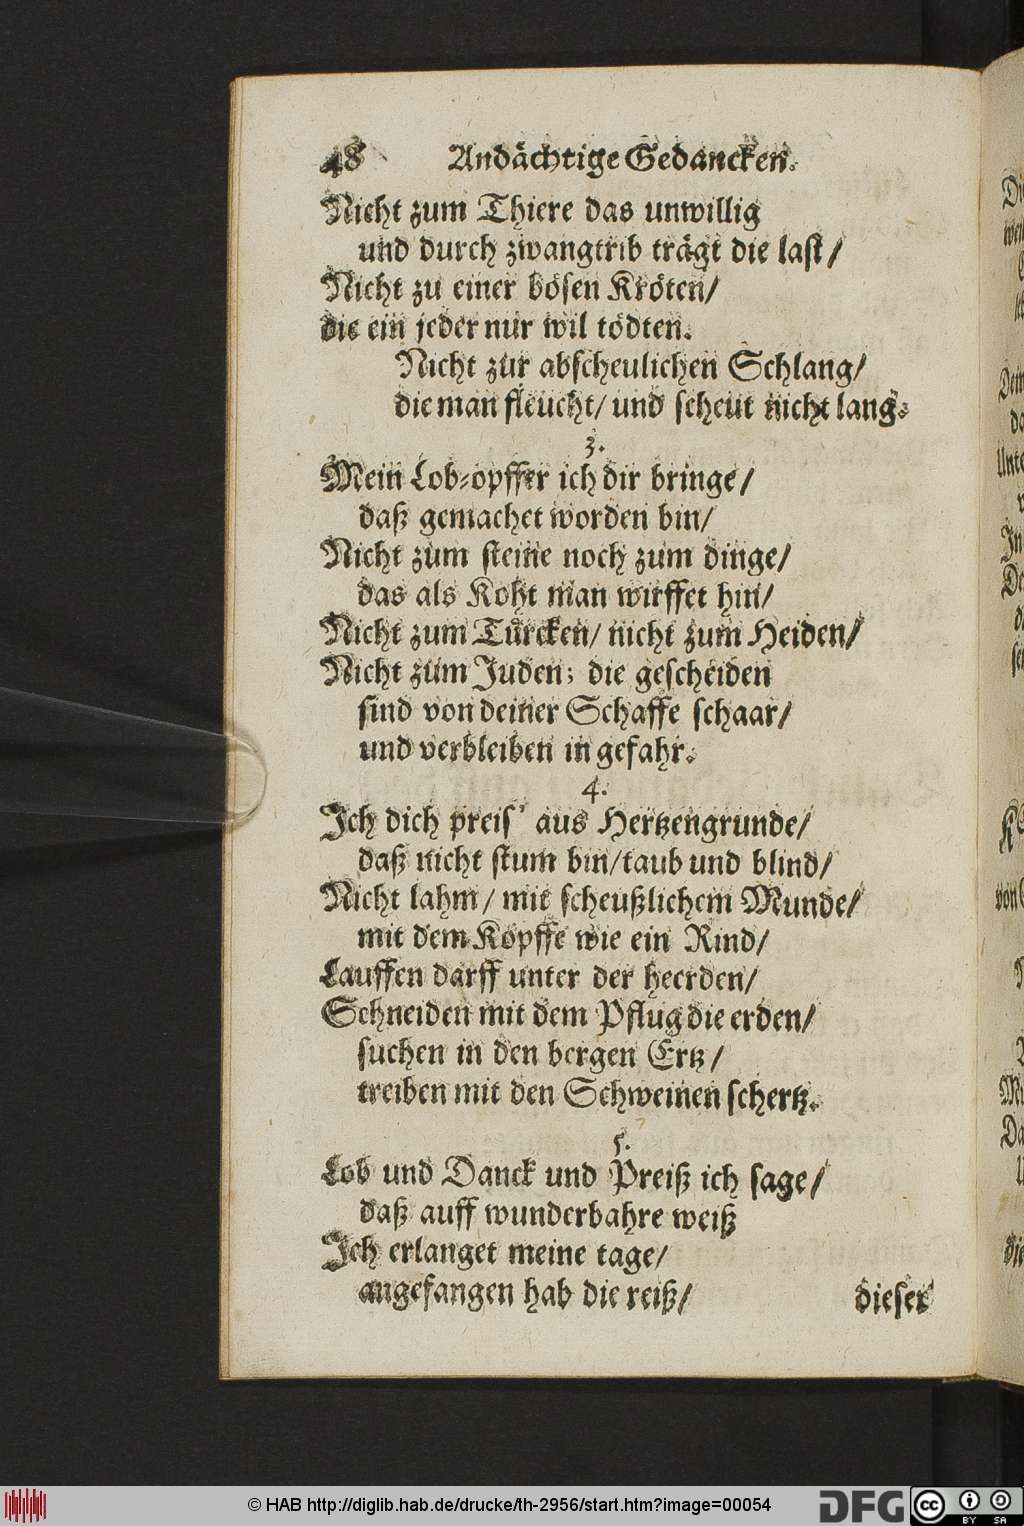 48 Andächtige Gedancken.
Nicht zum Thiere das unwillig
und durch zwangtrib trägt die last/
Nicht zu einer bösen Kröten/
die ein jeder nur wil tödten.
Nicht zur abscheulichen Schlang/
die man fleucht/ und scheut nicht lang.
3.
Mein Lob-opffer ich dir bringe/
daß gemachet worden bin/
Nicht zum steine noch zum dinge/
das als Koht man wirffet hin/
Nicht zum Türcken/ nicht zum Heiden/
Nicht zum Juden; die gescheiden
sind von deiner Schaffe schaar/
und verbleiben in gefahr.
4.
Ich dich preis' aus Hertzengrunde/
daß nicht stum bin/taub und blind/
Nicht lahm/ mit scheußlichem Munde/
mit dem Kopffe wie ein Rind/
Lauffen darff unter der heerden/
Schneiden mit dem Pflug die erden/
suchen in den bergen Ertz/
treiben mit den Schweinen schertz.
5.
Lob und Danck und Preiß ich sage/
daß auff wunderbahre weiß
Ich erlanget meine tage/
angefangen hab die reiß/
dieser
© HAB http://diglib.hab.de/drucke/th-2956/start.htm?image=00054
DFG
cc BY SA